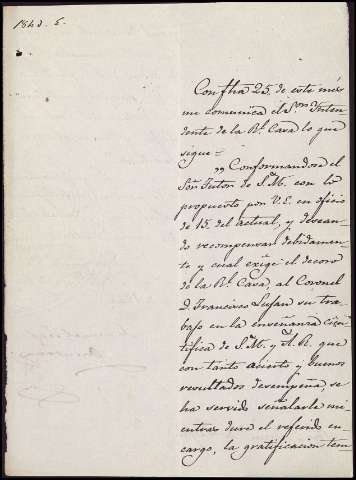 1843. 6.
Con fha 25. de este mes
me comunica el Sor. Inten
dente de la Rl. Casa lo que
sigue=
"Conformandose el
Sor. Tutor de S. M. con lo
propuesto por V. E. en oficio
de 15. del actual, y desean-
do recompensar debidamen-
te y cual exige el decoro
de la Rl. Casa, al Coronel
D. Francisco Lujan su tra-
bajo en la enseñanza cien-
tifica de S. M. y A. R. que
con tanto acierto y buenos
resultados desempeña, se
ha servido señalarle mi-
entras dure el referido en-
cargo, la gratificacion tem-